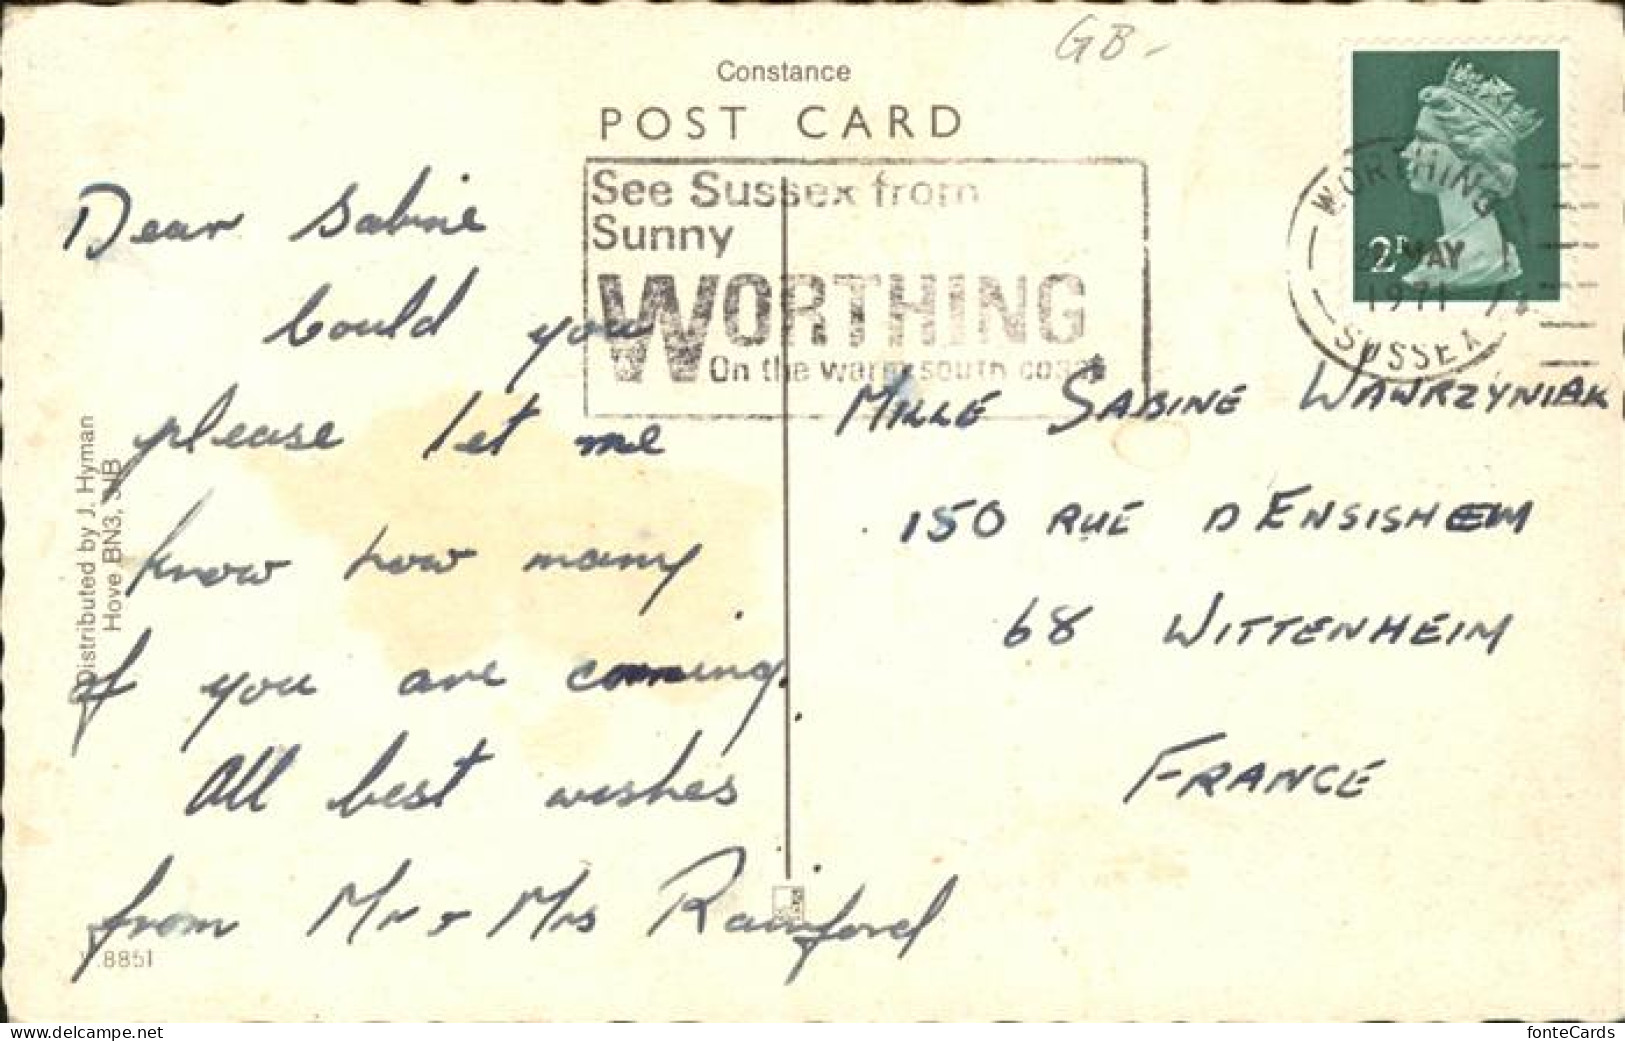 GB-
Constance
POST CARD
See Sussex from
Sunny
WORTHING
On the warm south coast
WORTHING
MAY
1971
SUSSEX
2P
Dear Sabine
Could you
please let me
know how many
of you are coming.
All best wishes
from Mr + Mrs Rainford
MILLE SABINE WAWRZYNIAK
150 RUE D ENSISHEIM
68 WITTENHEIM
FRANCE
Distributed by J. Hyman
Hove BN3,
.8851
www.delcampe.net
fonteCards